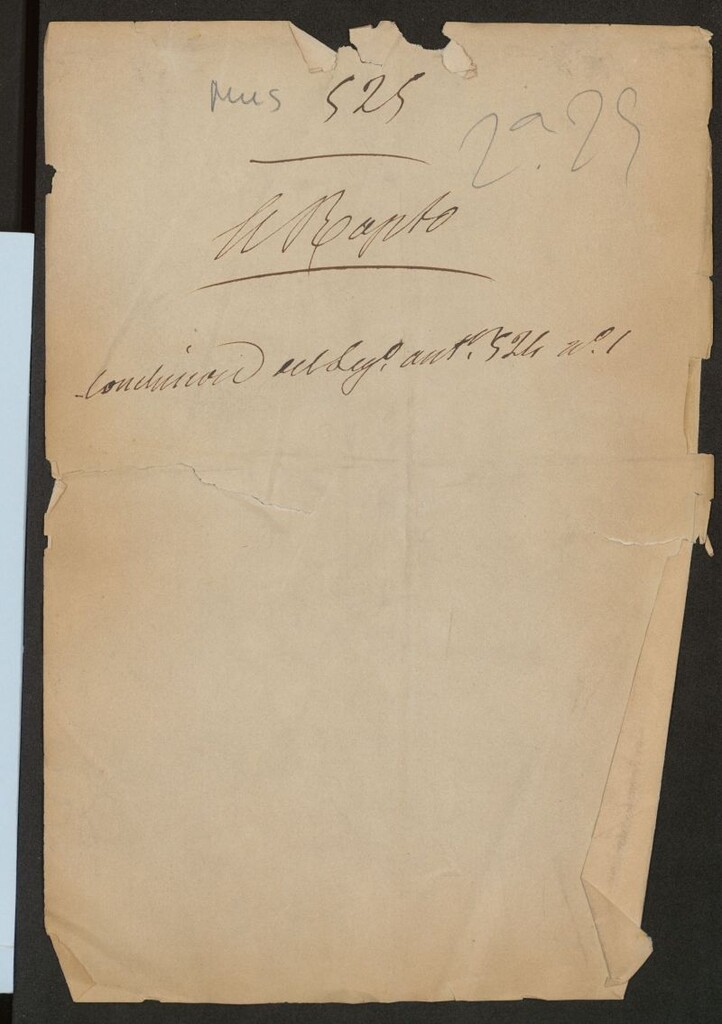 Mus 525
2ª. 25
El Rapto
Conclusion del Leg.º ant.r 524 nº. 1